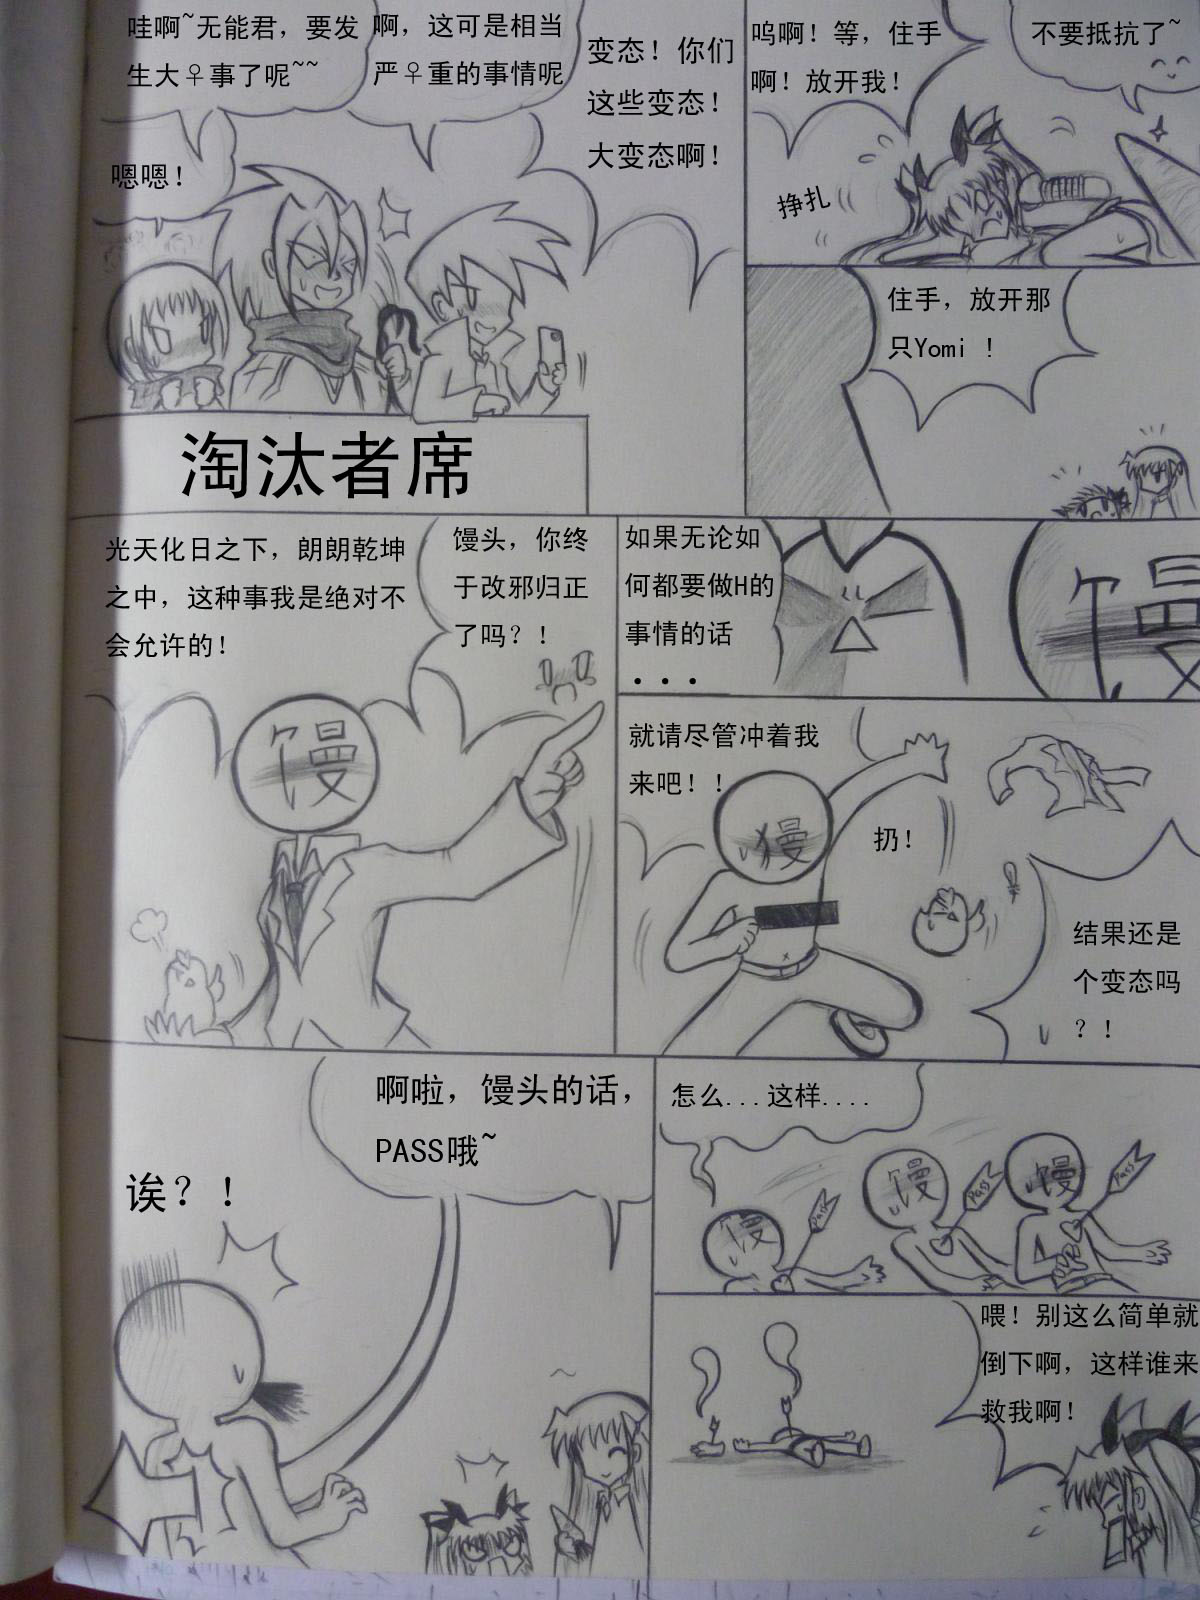 哇啊~无能君，要发
生大♀事了呢~~
啊，这可是相当
严♀重的事情呢
嗯嗯！
变态！你们
这些变态！
大变态啊！
淘汰者席
呜啊！等，住手
啊！放开我！
不要抵抗了~
挣扎
住手，放开那
只Yomi !
光天化日之下，朗朗乾坤
之中，这种事我是绝对不
会允许的！
馒头，你终
于改邪归正
了吗？！
馒
如果无论如
何都要做H的
事情的话
...
馒
就请尽管冲着我
来吧！！
馒
扔！
结果还是
个变态吗
？！
啊啦，馒头的话，
PASS哦~
诶？！
怎么...这样....
馒
Pass
馒
Pass
馒
Pass
喂！别这么简单就
倒下啊，这样谁来
救我啊！